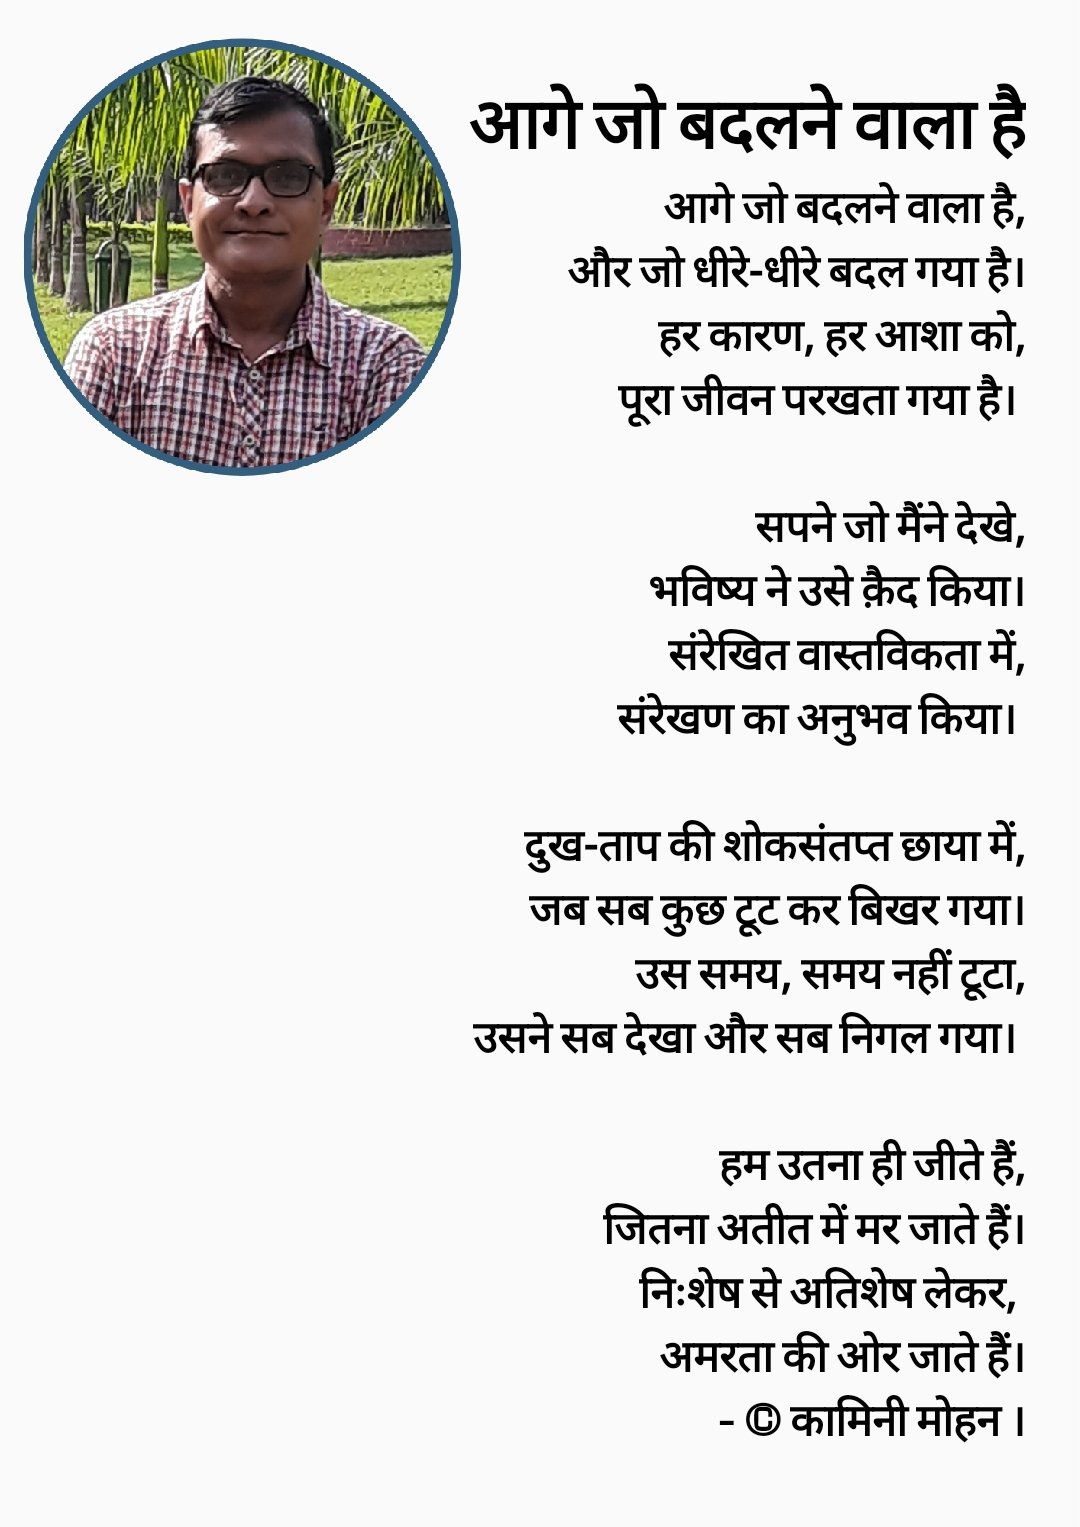 आगे जो बदलने वाला है
आगे जो बदलने वाला है,
और जो धीरे-धीरे बदल गया है।
हर कारण, हर आशा को,
पूरा जीवन परखता गया है।
सपने जो मैंने देखे,
भविष्य ने उसे क़ैद किया।
संरेखित वास्तविकता में,
संरेखण का अनुभव किया।
दुख-ताप की शोकसंतप्त छाया में,
जब सब कुछ टूट कर बिखर गया।
उस समय, समय नहीं टूटा,
उसने सब देखा और सब निगल गया।
हम उतना ही जीते हैं,
जितना अतीत में मर जाते हैं।
निःशेष से अतिशेष लेकर,
अमरता की ओर जाते हैं।
- © कामिनी मोहन ।